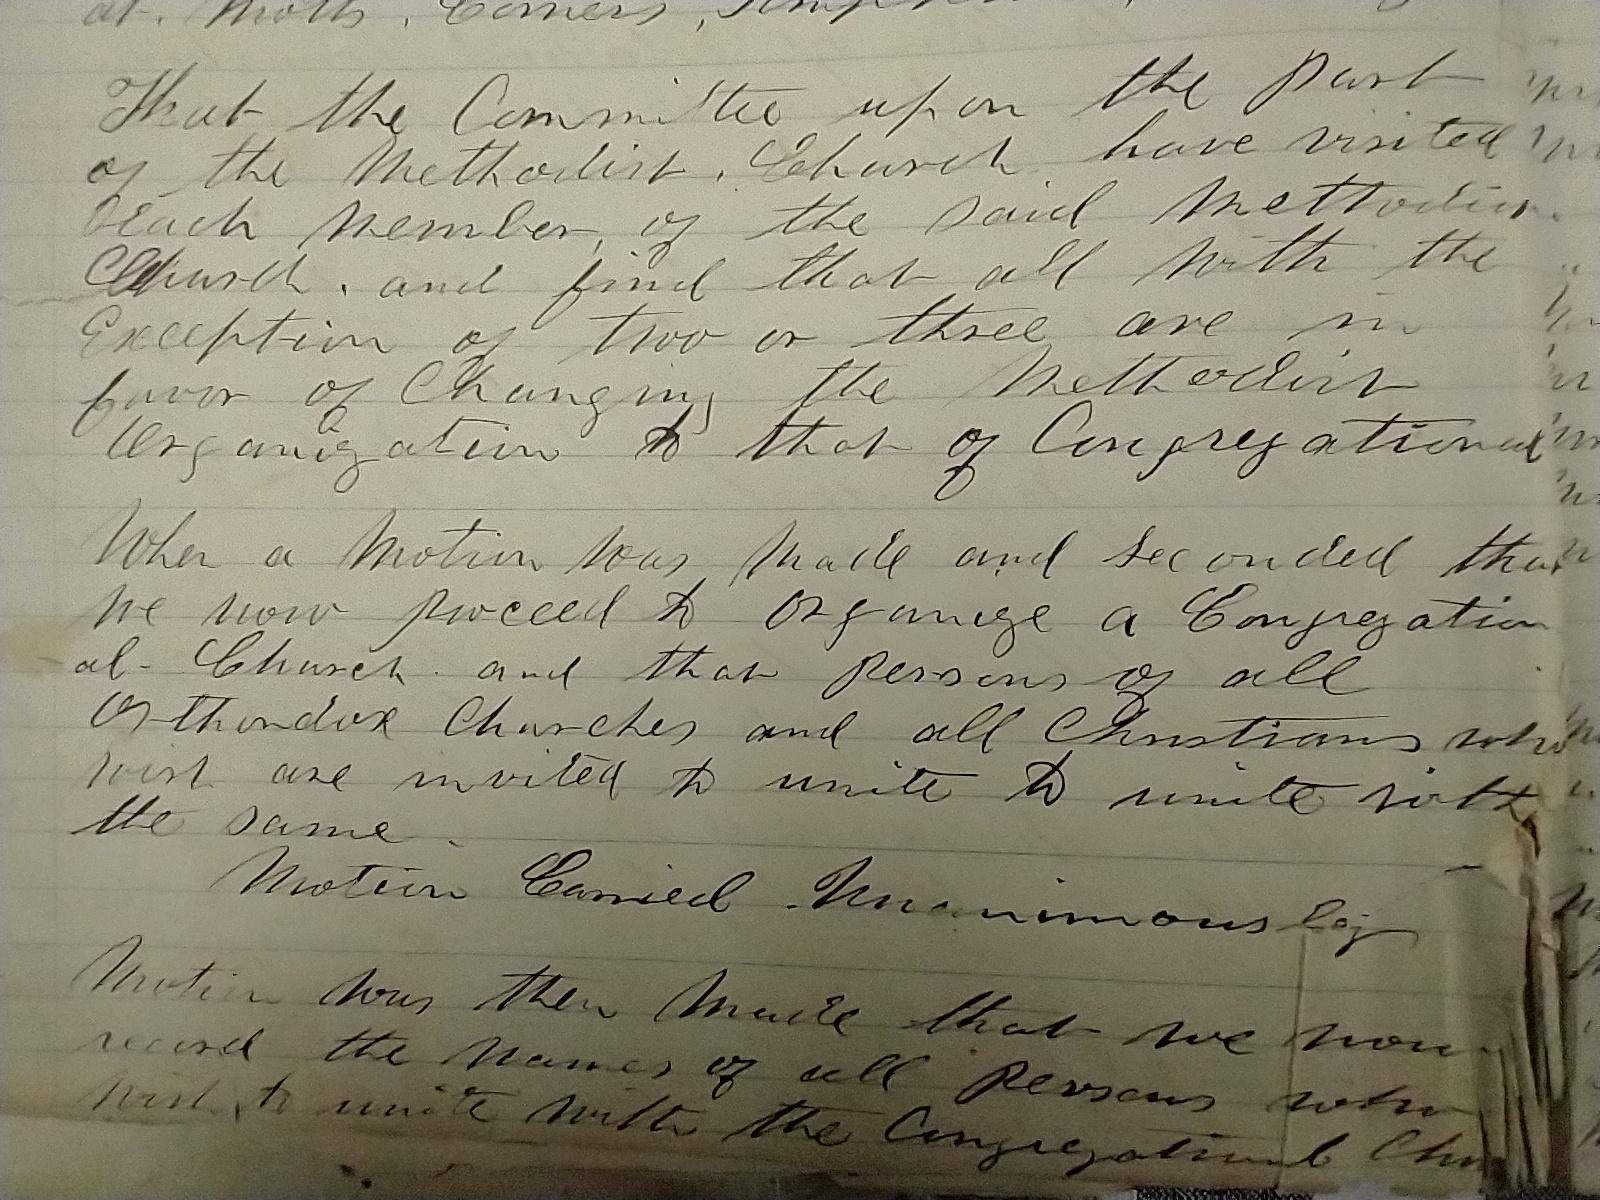 at. Motts, Corners,
That the Committee upon the part
of the Methodist. Church have visited
Each Member, of the said Methodist.
Church. and find that all with the
Exception of two or three are in
favor of Changing the Methodist
Organization to that of Congregational
When a Motion was Made and Seconded that
we now proceed to Organize a Congregation
al- Church. and that persons of all
Orthondox Churches and all Christians who
wish are invited to unite to unite with
the same.
Motion Carried Unanimously
Motion was then Made that we now
record the Names of all persons who
wish to unite with the Congregational